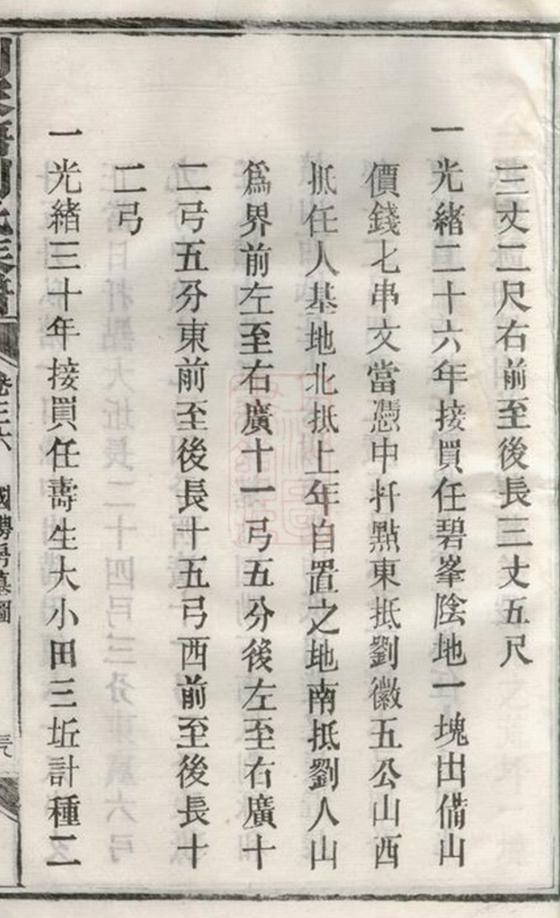 三丈二尺右前至後長三丈五尺
一光緒二十六年接買任碧峯陰地一塊出備山
價錢七串文當憑中扦點東抵劉徽五公山西
抵任人基地北抵上年自置之地南抵劉人山
爲界前左至右廣十一弓五分後左至右廣十
二弓五分東前至後長十五弓西前至後長十
二弓
一光緒三十年接買任壽生大小田三坵計種二
卷三六